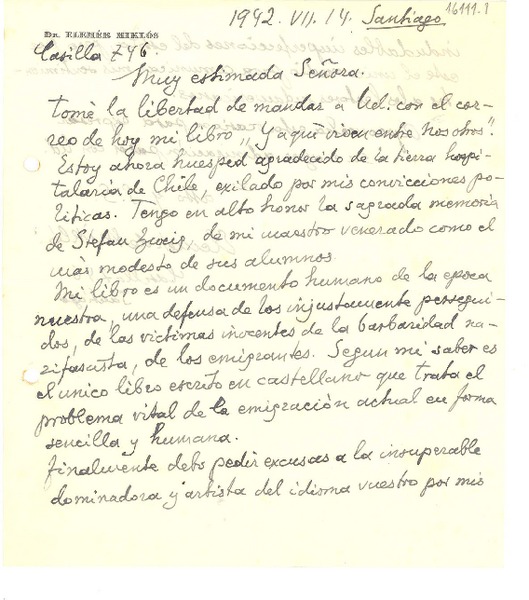 16111.1
1942. VII. 14. Santiago
Dr. ELEMÉR MIKLÓS
Casilla 746.
Muy estimada Señora.
tomé la libertad de mandar a Ud. con el cor-
reo de hoy mi libro „Y aquí viven entre nosotros".
Estoy ahora huesped agradecido de la tierra hospi-
talaria de Chile, exilado por mis convicciones po-
liticas. Tengo en alto honor la sagrada memoria
de Stefan Zweig, de mi maestro venerado como el
más modesto de sus alumnos.
Mi libro es un documento humano de la epoca
nuestra, una defensa de los injustamente persegui-
dos, de las victimas inocentes de la barbaridad na-
zifascista, de los emigrantes. Segun mi saber es
el unico libro escrito en castellano que trata el
problema vital de la emigración actual en forma
sencilla y humana.
finalmente debo pedir excusas a la insuperable
dominadora y artista del idioma vuestro por mis